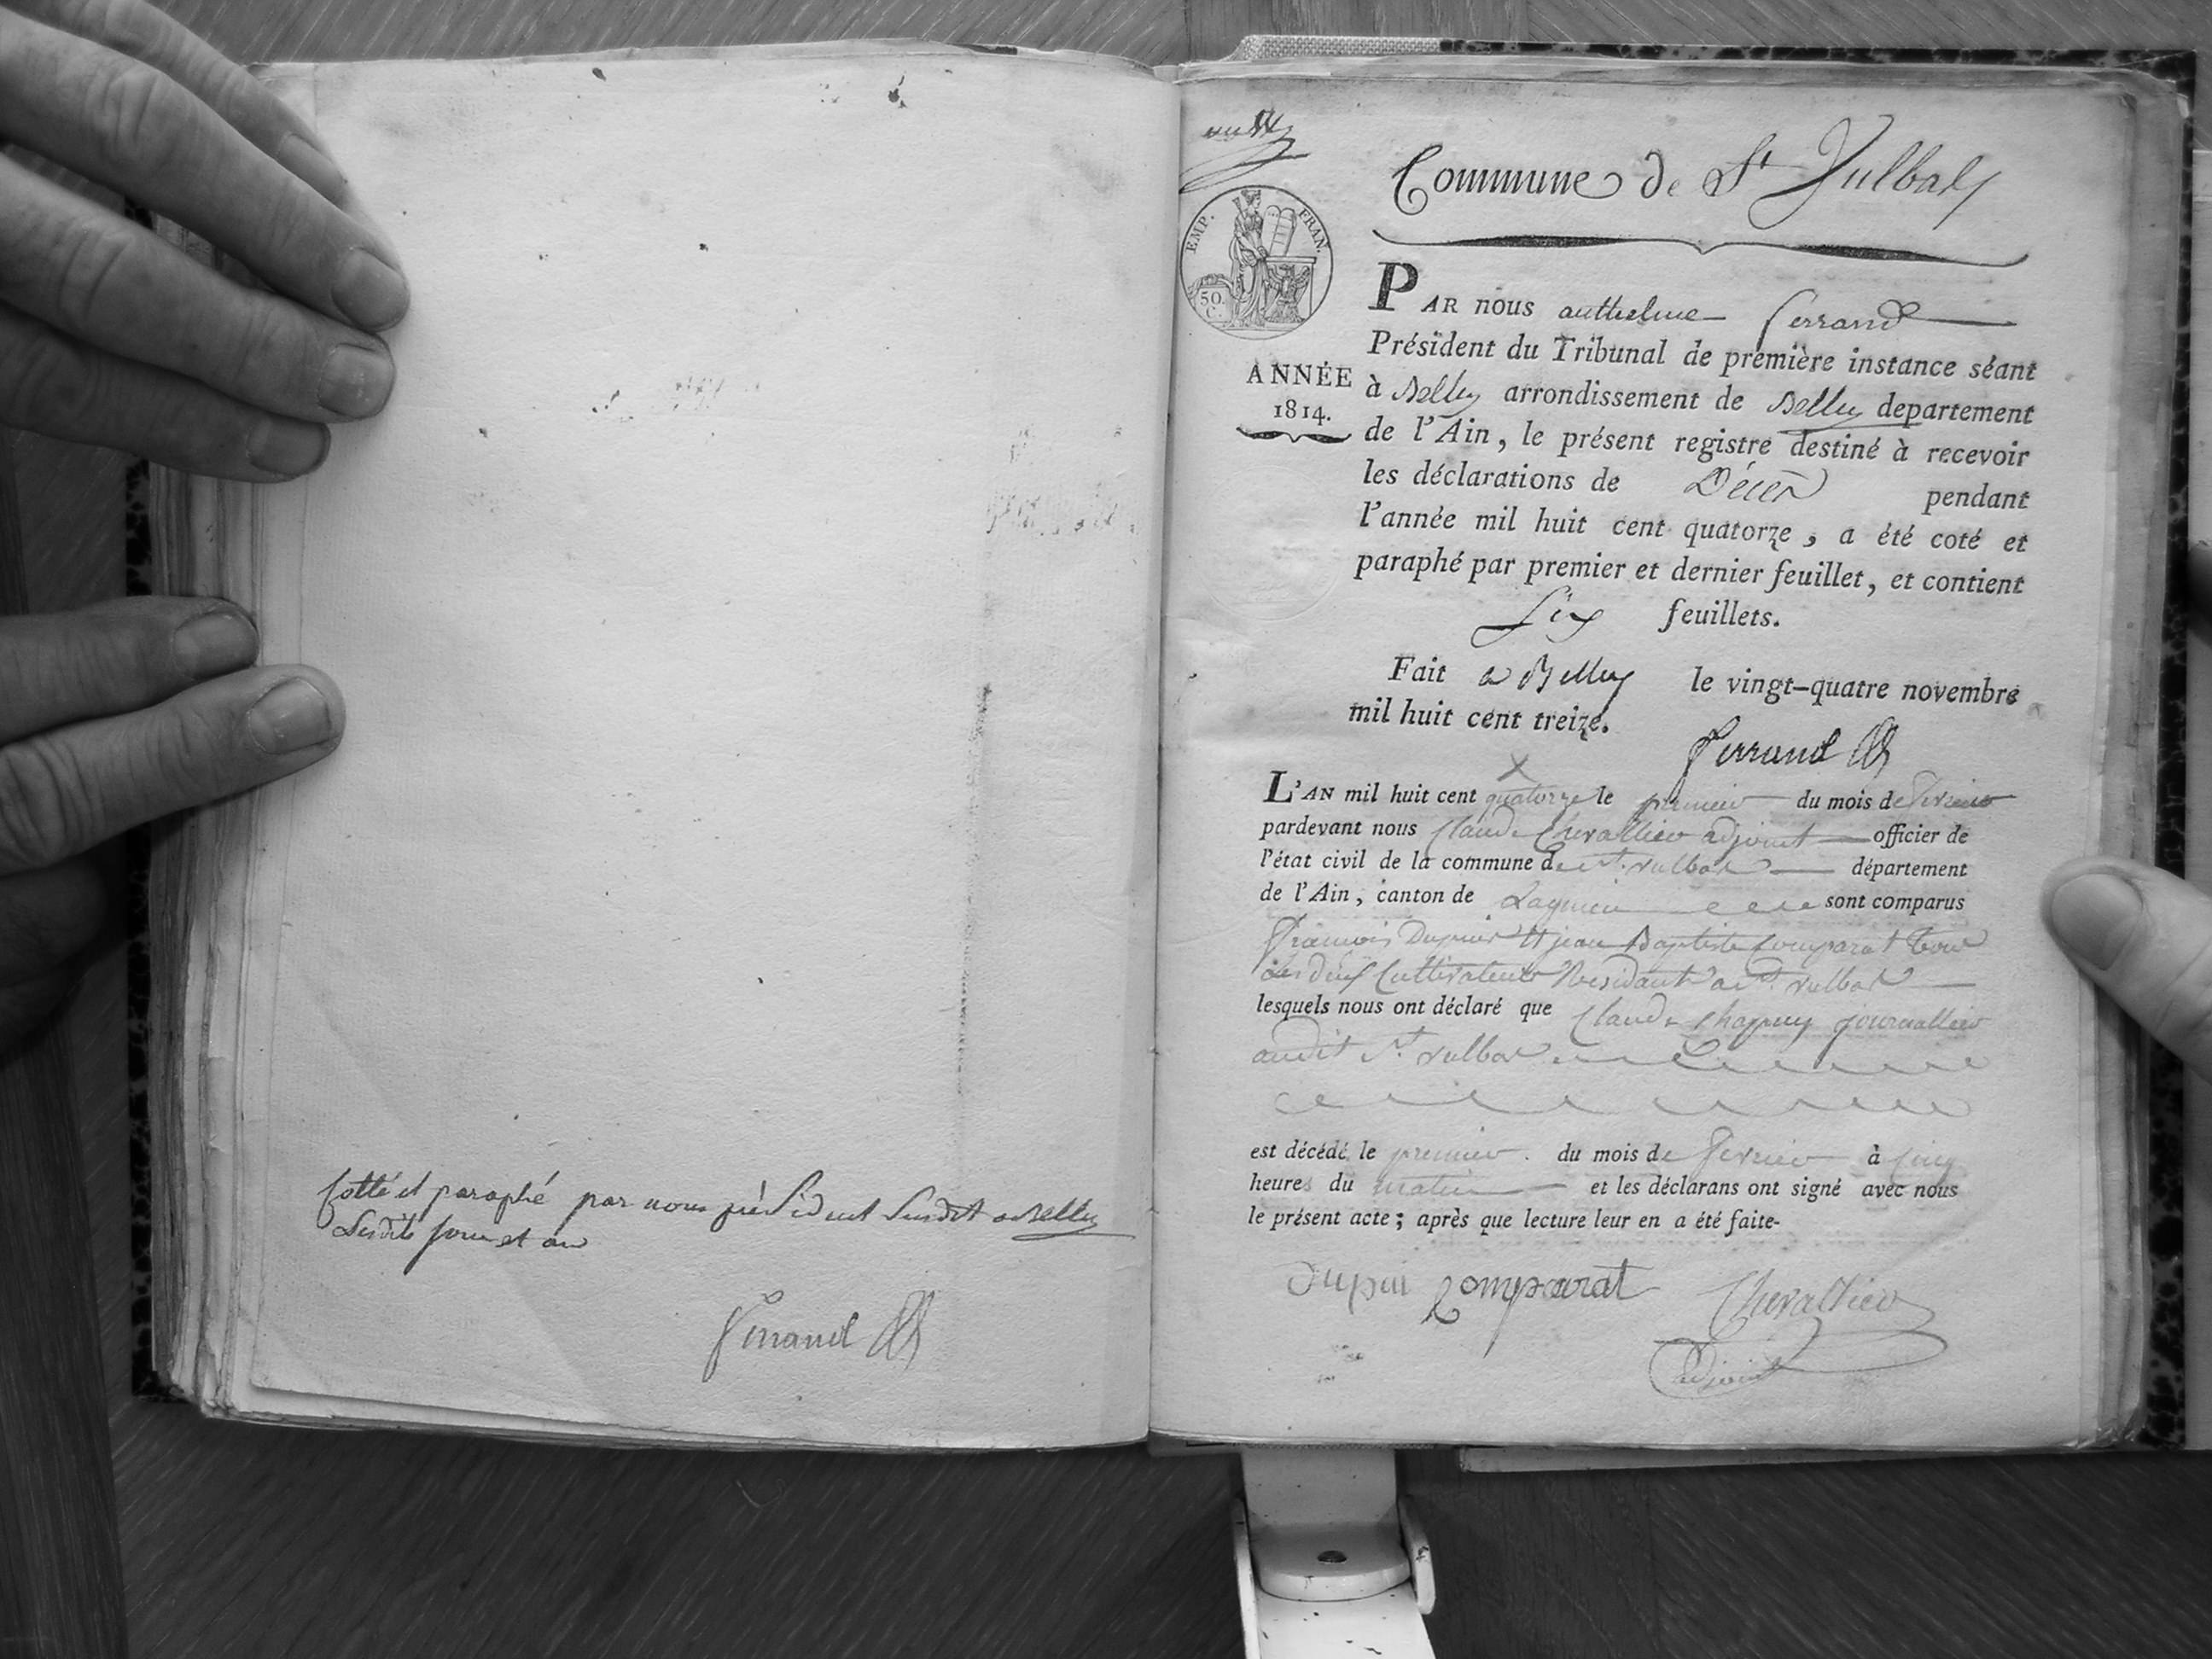 Cotté et paraphé par nous président Susdit a Belley
Lesdits jour et an
Ferrand
Commune de St Vulbas
EMP. FRAN.
50.
C.
ANNÉE
1814.
PAR nous anthelme ferrand
Président du Tribunal de première instance séant
à Belley arrondissement de Belley departement
de l'Ain, le présent registre destiné à recevoir
les déclarations de Décès pendant
l'année mil huit cent quatorze, a été coté et
paraphé par premier et dernier feuillet, et contient
Six feuillets.
Fait a Belley le vingt-quatre novembre
mil huit cent treize.
Ferrand
L'AN mil huit cent quatorze le premier du mois de fevrier
pardevant nous Claude Chevallier adjoint officier de
l'état civil de la commune de St. vulbas département
de l'Ain, canton de Lagnieu sont comparus
François Dupuis et jean Baptiste Comparat tous
les deux Cultivateurs Residants a St. vulbas
lesquels nous ont déclaré que Claude Chapuy journallier
audit St. vulbas
est décédé le premier du mois de fevrier à cinq
heures du matin et les déclarans ont signé avec nous
le présent acte; après que lecture leur en a été faite-
Dupui Comparat Chevallier
adjoint